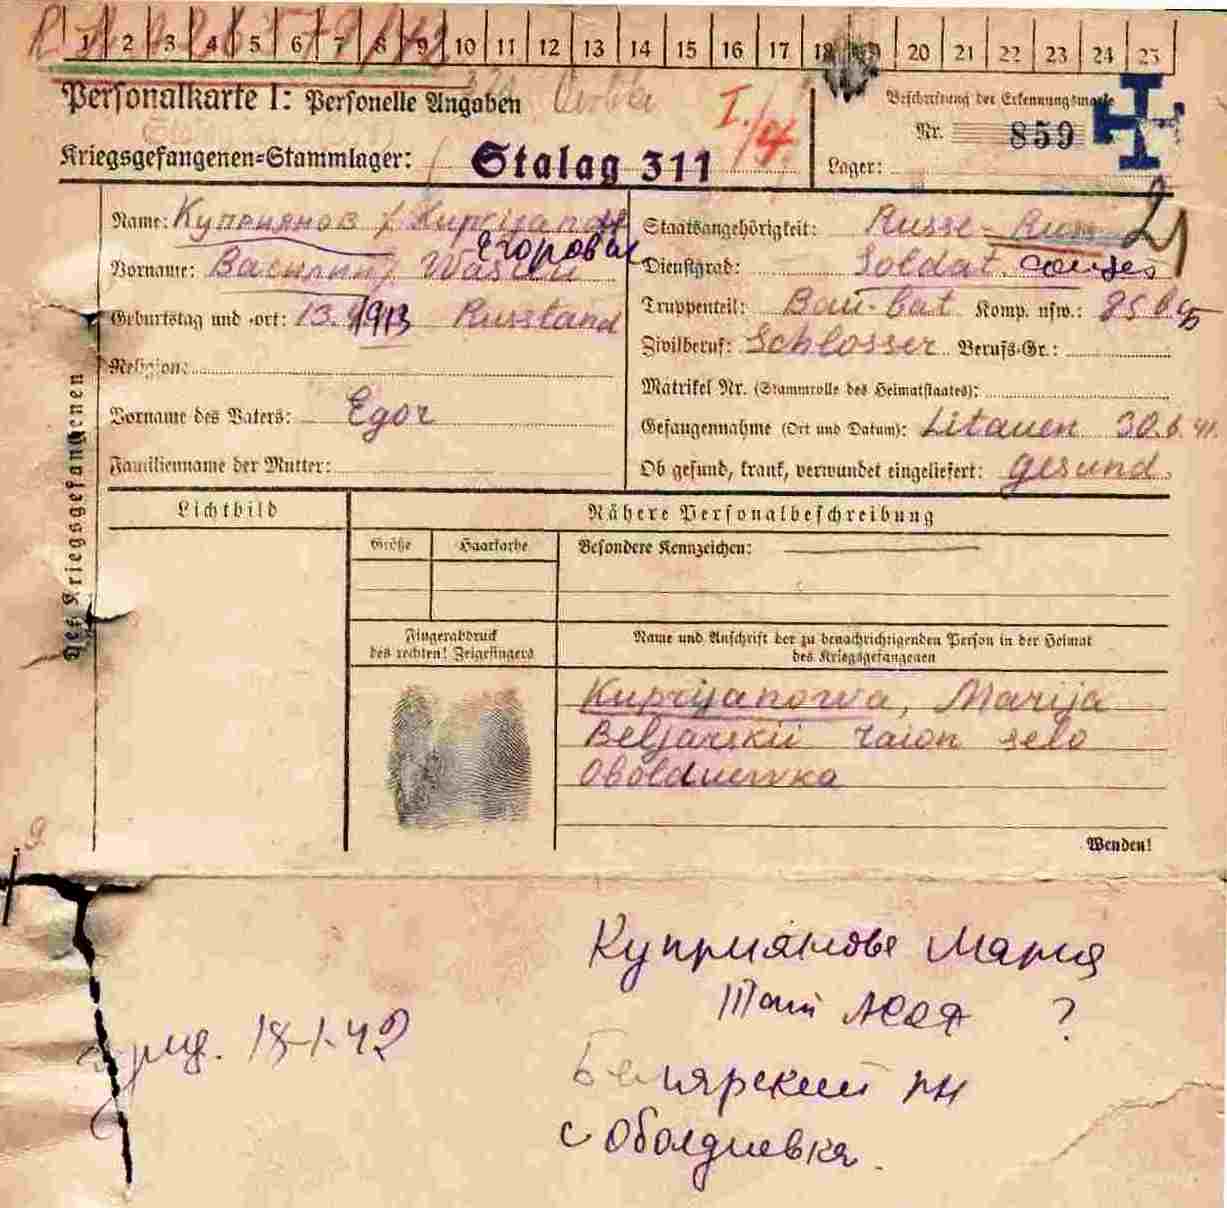 1 2 3 4 5 6 7 8 9 10 11 12 13 14 15 16 17 18 19 20 21 22 23 24 25
Personalkarte I: Personelle Angaben
Beschriftung der Erkennungsmarke
Nr. 859
Kriegsgefangenen-Stammlager: Stalag 311
I./4
Lager:
Des Kriegsgefangenen
Name: Куприянов / Kuprijanoff
Егоровы
Vorname: Василий / Wasilii
Geburtstag und -ort: 13. 1913 Russland
Religion:
Vorname des Vaters: Egor
Familienname der Mutter:
Staatsangehörigkeit: Russe
Dienstgrad: Soldat
Truppenteil: Bau-bat Komp. usw.:
Zivilberuf: Schlosser Berufs-Gr.:
Matrikel Nr. (Stammrolle des Heimatstaates):
Gefangennahme (Ort und Datum): Litauen 30.6.41.
Ob gesund, krank, verwundet eingeliefert: gesund.
Lichtbild
Nähere Personalbeschreibung
Größe Haarfarbe Besondere Kennzeichen:
Fingerabdruck
des rechten! Zeigefingers
Name und Anschrift der zu benachrichtigenden Person in der Heimat
des Kriegsgefangenen
Kuprijanowa, Marija
Beljarskii raion selo
Obolduewka
Wenden!
Куприянова Мария
?
Белярский рн
с Оболдиевка.
18-1-42